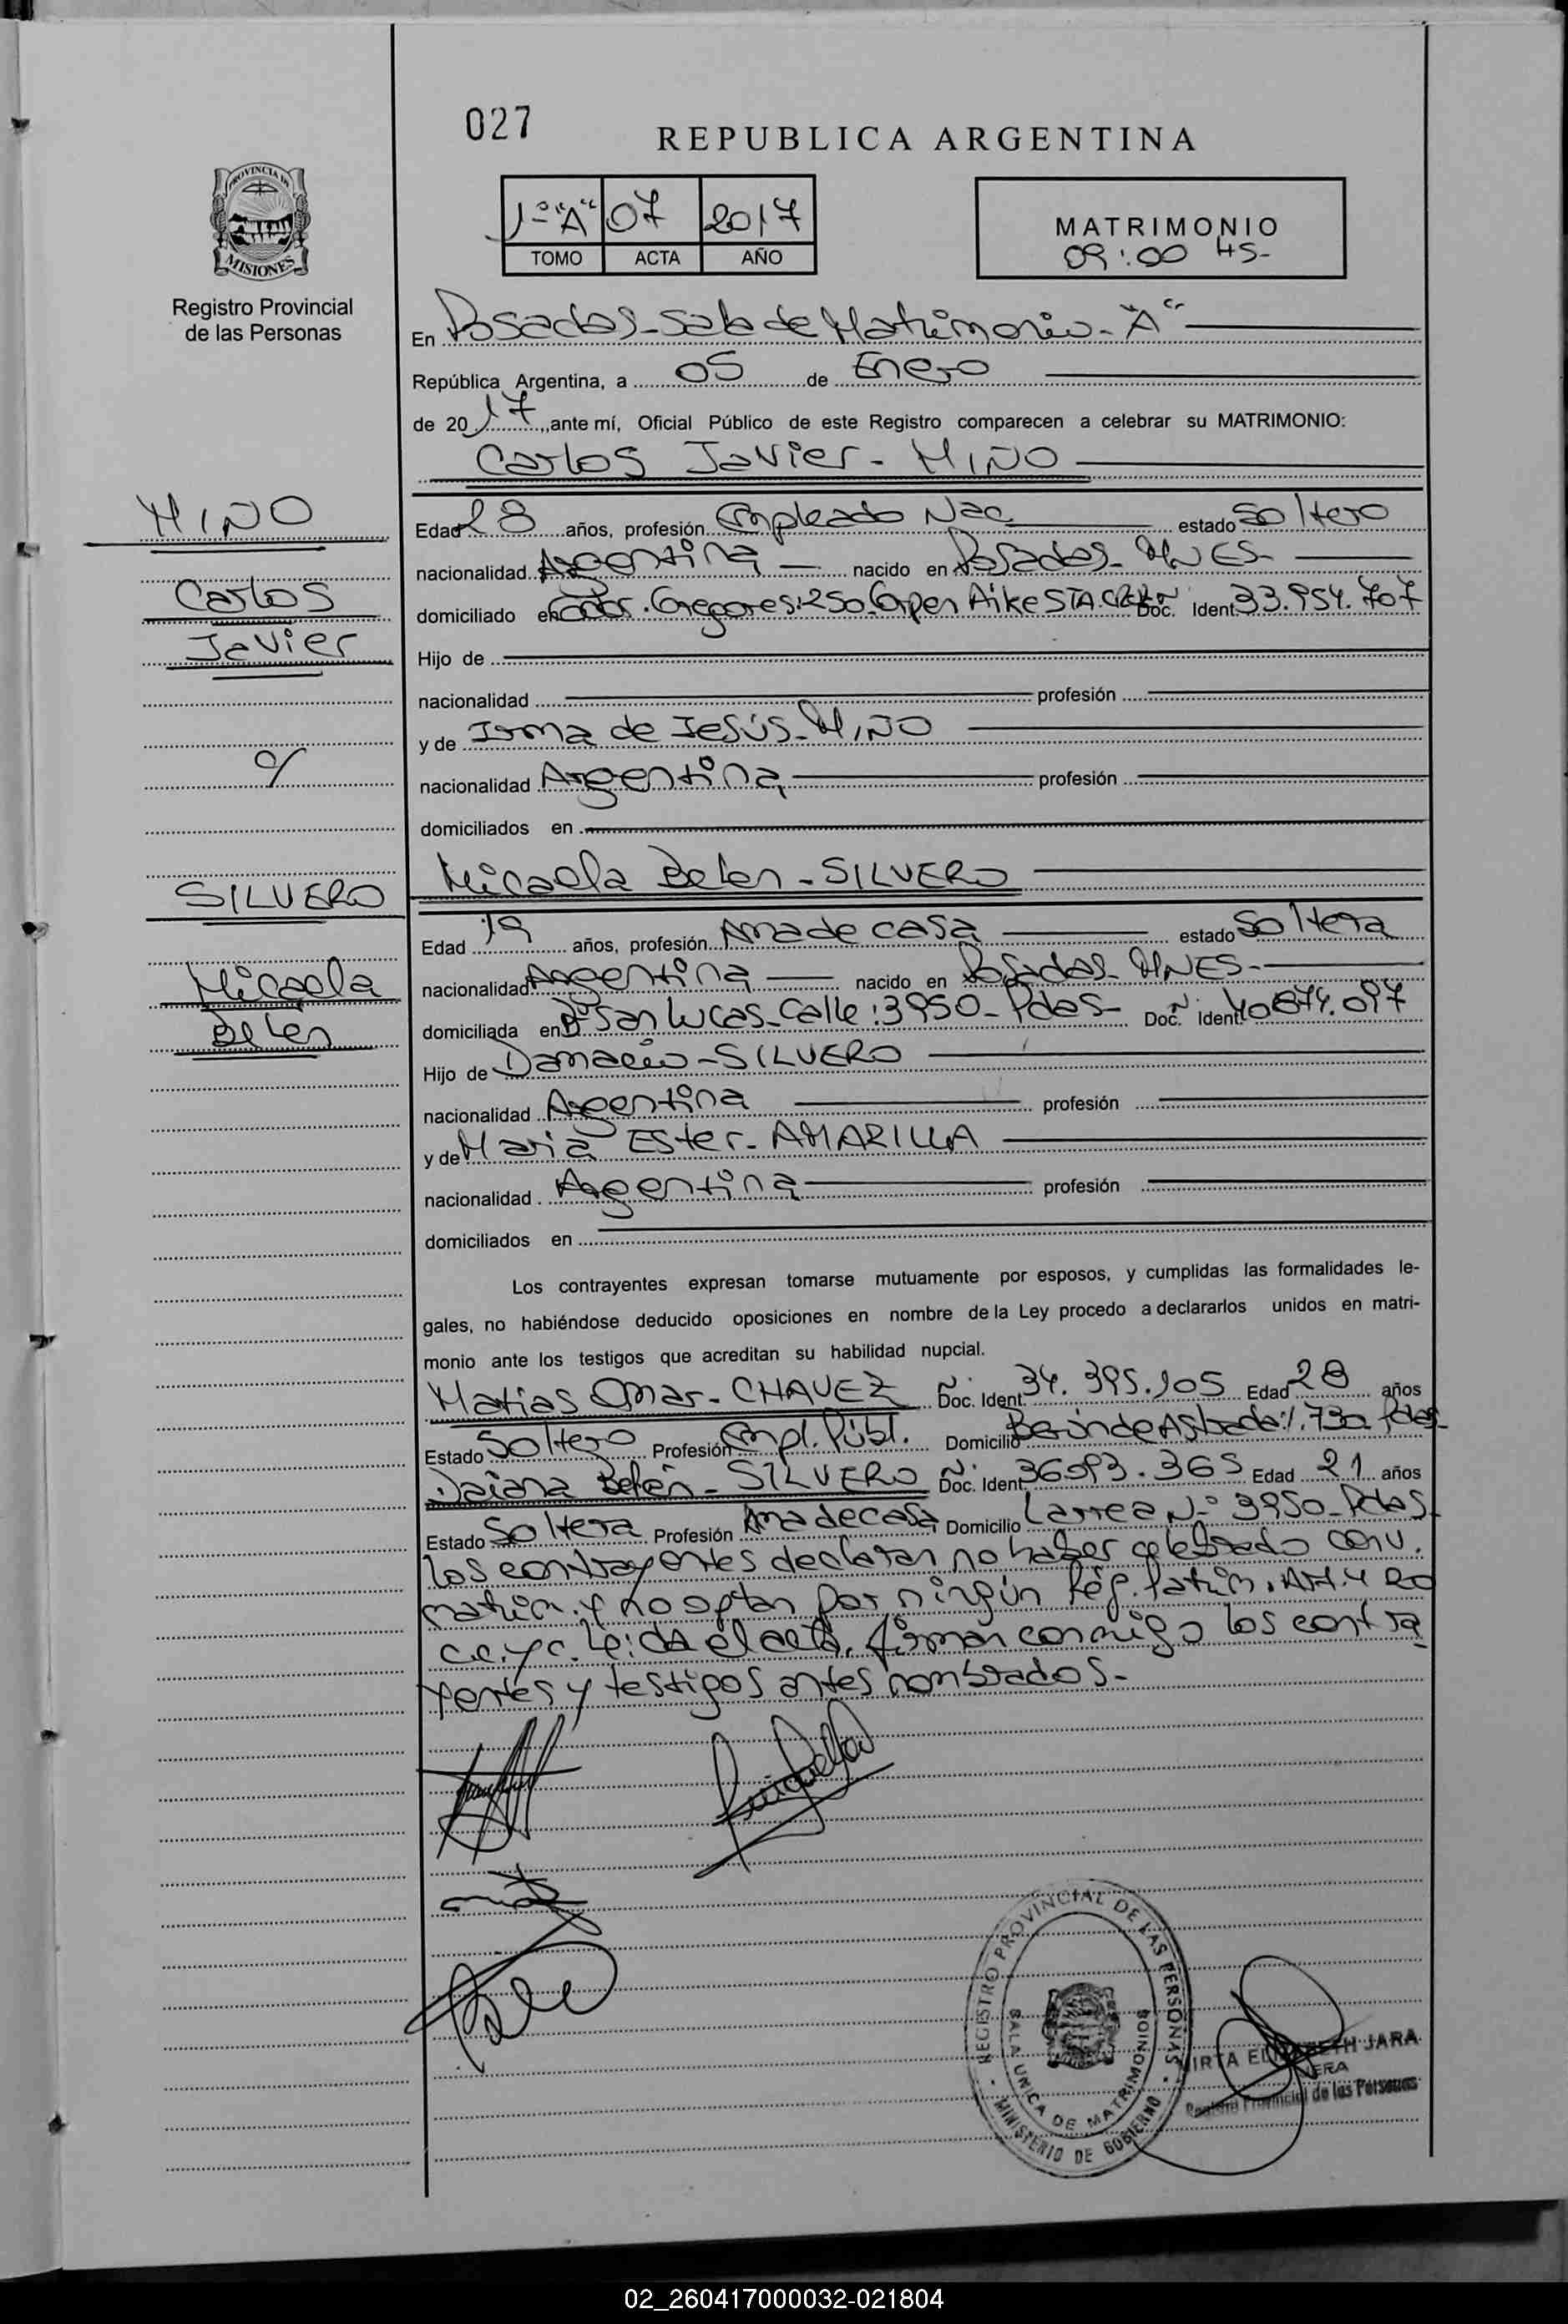 027
REPUBLICA ARGENTINA
PROVINCIA DE
MISIONES
Registro Provincial
de las Personas
1º "A" 07 2017
TOMO ACTA AÑO
MATRIMONIO
09:00 HS-
En Posadas-Sala de Matrimonio-"A"
República Argentina, a 05 de Enero
de 2017, ante mí, Oficial Público de este Registro comparecen a celebrar su MATRIMONIO:
Carlos Javier- MIÑO
MIÑO
Carlos
Javier
Edad 28 años, profesión Empleado Nac estado Soltero
nacionalidad Argentina nacido en Posadas- MNES-
domiciliado en Gdor. Gregores:250 Corpen Aike STA. CRUZ Nº Doc. Ident. 33.954.707
Hijo de
nacionalidad profesión
y de Irma de Jesús- MIÑO
nacionalidad Argentina profesión
domiciliados en
c/
Micaela Belen - SILVERO
SILVERO
Micaela
Belén
Edad 19 años, profesión Ama de casa estado Soltera
nacionalidad Argentina nacido en Posadas- MNES-
domiciliada en Bº San Lucas-Calle:3950- Pdas- Nº Doc. Ident. 40874.097
Hijo de Damacio-SILVERO
nacionalidad Argentina profesión
y de Maria Ester- AMARILLA
nacionalidad Argentina profesión
domiciliados en
Los contrayentes expresan tomarse mutuamente por esposos, y cumplidas las formalidades le-
gales, no habiéndose deducido oposiciones en nombre de la Ley procedo a declararlos unidos en matri-
monio ante los testigos que acreditan su habilidad nupcial.
Matias Omar- CHAVEZ Nº Doc. Ident. 34.395.105 Edad 28 años
Estado Soltero Profesión Empl. Públ. Domicilio 730 Pdas-
Daiana Belén- SILVERO Nº Doc. Ident. 36993.365 Edad 21 años
Estado Soltera Profesión Ama de casa Domicilio Larrea Nº 3950-Pdas-
Los contrayentes declaran no haber celebrado conv.
matrim. y no optan por ningún Rég. Patrim. Art. 420
c.c. y c. Leída el acta, firman conmigo los contra
yentes y testigos antes nombrados-
REGISTRO PROVINCIAL DE LAS PERSONAS
SALA UNICA DE MATRIMONIOS
MINISTERIO DE GOBIERNO
JARA
Registro Provincial de las Personas
02_260417000032-021804